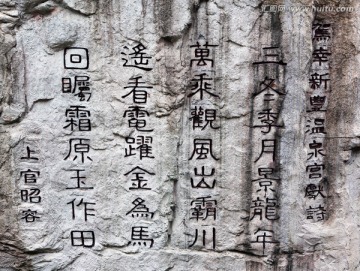 駕幸新豐温泉宮獻詩
三冬季月景龍年
萬乘觀風出霸川
遙看電躍金為馬
回矚霜原玉作田
上官昭容